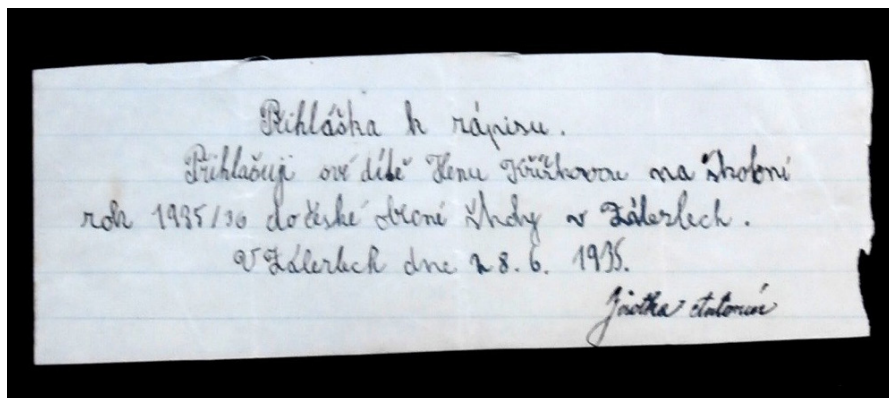 Přihláška k zápisu.
Přihlašuji své dítě Henu Křížkovou na školní
rok 1935/36 do české obecné školy v Zálezlech.
V Zálezlech dne 28. 6. 1935.
Antonín